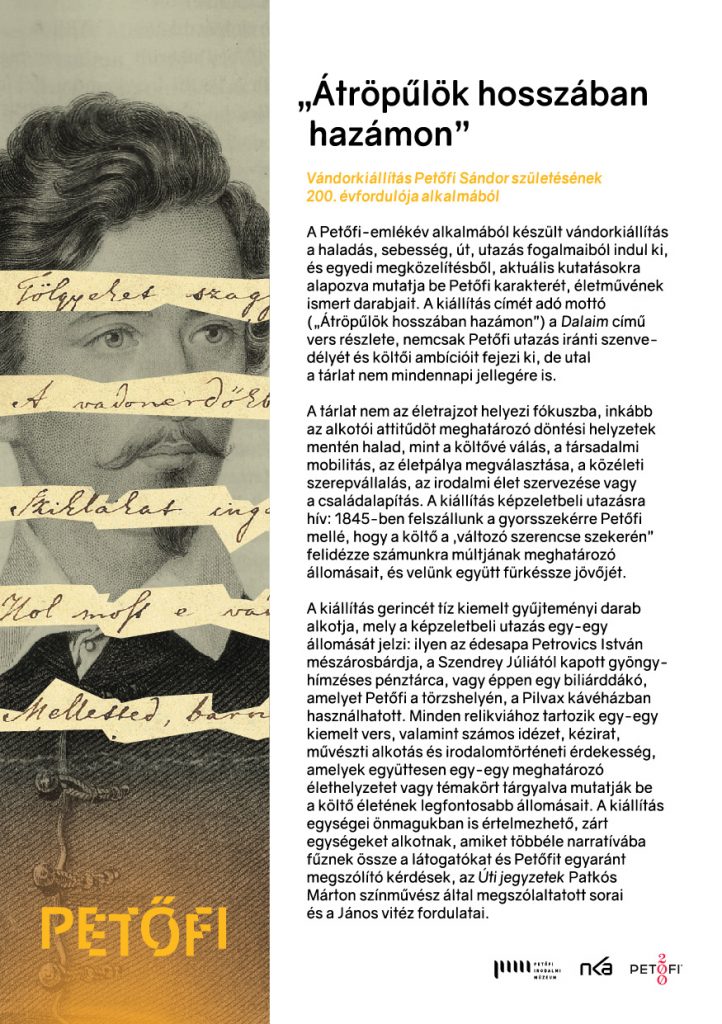 „Átröpűlök hosszában
hazámon”
Vándorkiállítás Petőfi Sándor születésének
200. évfordulója alkalmából
A Petőfi-emlékév alkalmából készült vándorkiállítás
a haladás, sebesség, út, utazás fogalmaiból indul ki,
és egyedi megközelítésből, aktuális kutatásokra
alapozva mutatja be Petőfi karakterét, életművének
ismert darabjait. A kiállítás címét adó mottó
(„Átröpűlök hosszában hazámon”) a Dalaim című
vers részlete, nemcsak Petőfi utazás iránti szenve-
délyét és költői ambícióit fejezi ki, de utal
a tárlat nem mindennapi jellegére is.
A tárlat nem az életrajzot helyezi fókuszba, inkább
az alkotói attitűdöt meghatározó döntési helyzetek
mentén halad, mint a költővé válás, a társadalmi
mobilitás, az életpálya megválasztása, a közéleti
szerepvállalás, az irodalmi élet szervezése vagy
a családalapítás. A kiállítás képzeletbeli utazásra
hív: 1845-ben felszállunk a gyorsszekérre Petőfi
mellé, hogy a költő a ‚változó szerencse szekerén”
felidézze számunkra múltjának meghatározó
állomásait, és velünk együtt fürkéssze jövőjét.
A kiállítás gerincét tíz kiemelt gyűjteményi darab
alkotja, mely a képzeletbeli utazás egy-egy
állomását jelzi: ilyen az édesapa Petrovics István
mészárosbárdja, a Szendrey Júliától kapott gyöngy-
hímzéses pénztárca, vagy éppen egy biliárddákó,
amelyet Petőfi a törzshelyén, a Pilvax kávéházban
használhatott. Minden relikviához tartozik egy-egy
kiemelt vers, valamint számos idézet, kézirat,
művészti alkotás és irodalomtörténeti érdekesség,
amelyek együttesen egy-egy meghatározó
élethelyzetet vagy témakört tárgyalva mutatják be
a költő életének legfontosabb állomásait. A kiállítás
egységei önmagukban is értelmezhető, zárt
egységeket alkotnak, amiket többéle narratívába
fűznek össze a látogatókat és Petőfit egyaránt
megszólító kérdések, az Úti jegyzetek Patkós
Márton színművész által megszólaltatott sorai
és a János vitéz fordulatai.
Tölgyeket szagg
A vadonerdőkb
Sziklákat ing
Hol moss e vad
Melletted, bar
PETŐFI
PETŐFI
IRODALMI
MÚZEUM
nka
PETŐFI
200